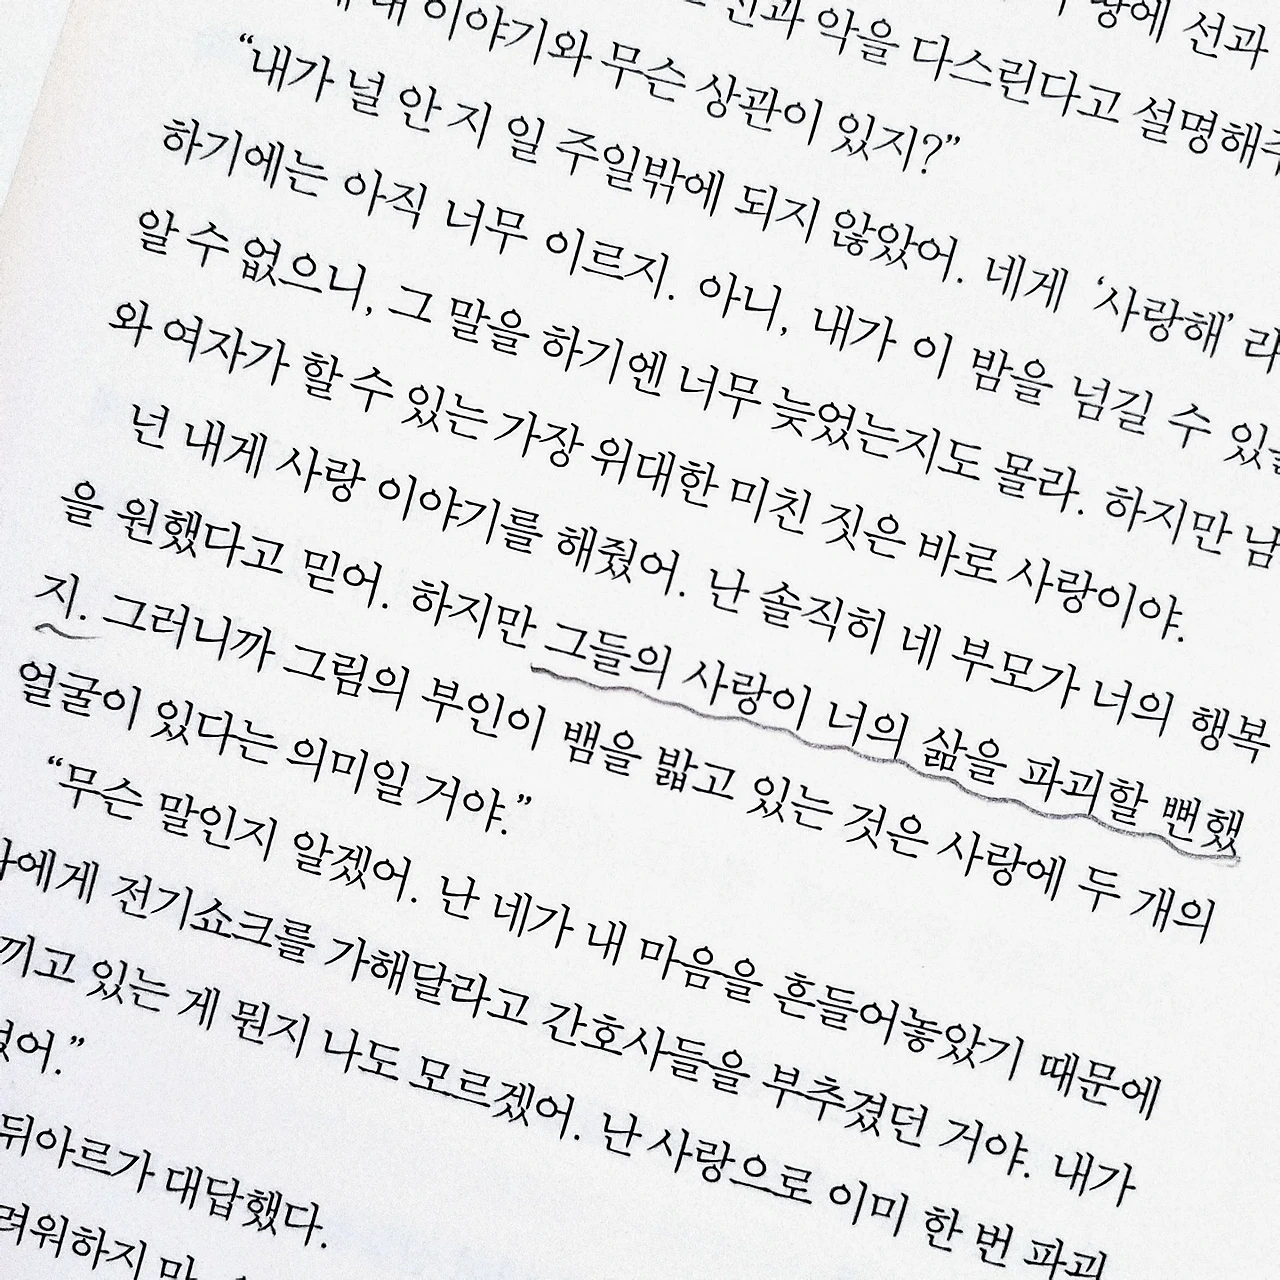 땅에 선과
악을 다스린다고 설명해주
내 이야기와 무슨 상관이 있지?”
“내가 널 안 지 일 주일밖에 되지 않았어. 네게 ‘사랑해’ 라
하기에는 아직 너무 이르지. 아니, 내가 이 밤을 넘길 수 있을
알 수 없으니, 그 말을 하기엔 너무 늦었는지도 몰라. 하지만 남
와 여자가 할 수 있는 가장 위대한 미친 짓은 바로 사랑이야.
넌 내게 사랑 이야기를 해줬어. 난 솔직히 네 부모가 너의 행복
을 원했다고 믿어. 하지만 그들의 사랑이 너의 삶을 파괴할 뻔했
지. 그러니까 그림의 부인이 뱀을 밟고 있는 것은 사랑에 두 개의
얼굴이 있다는 의미일 거야.”
“무슨 말인지 알겠어. 난 네가 내 마음을 흔들어놓았기 때문에
에게 전기쇼크를 가해달라고 간호사들을 부추겼던 거야. 내가
끼고 있는 게 뭔지 나도 모르겠어. 난 사랑으로 이미 한 번 파괴
어.”
뒤아르가 대답했다.
려워하지 마